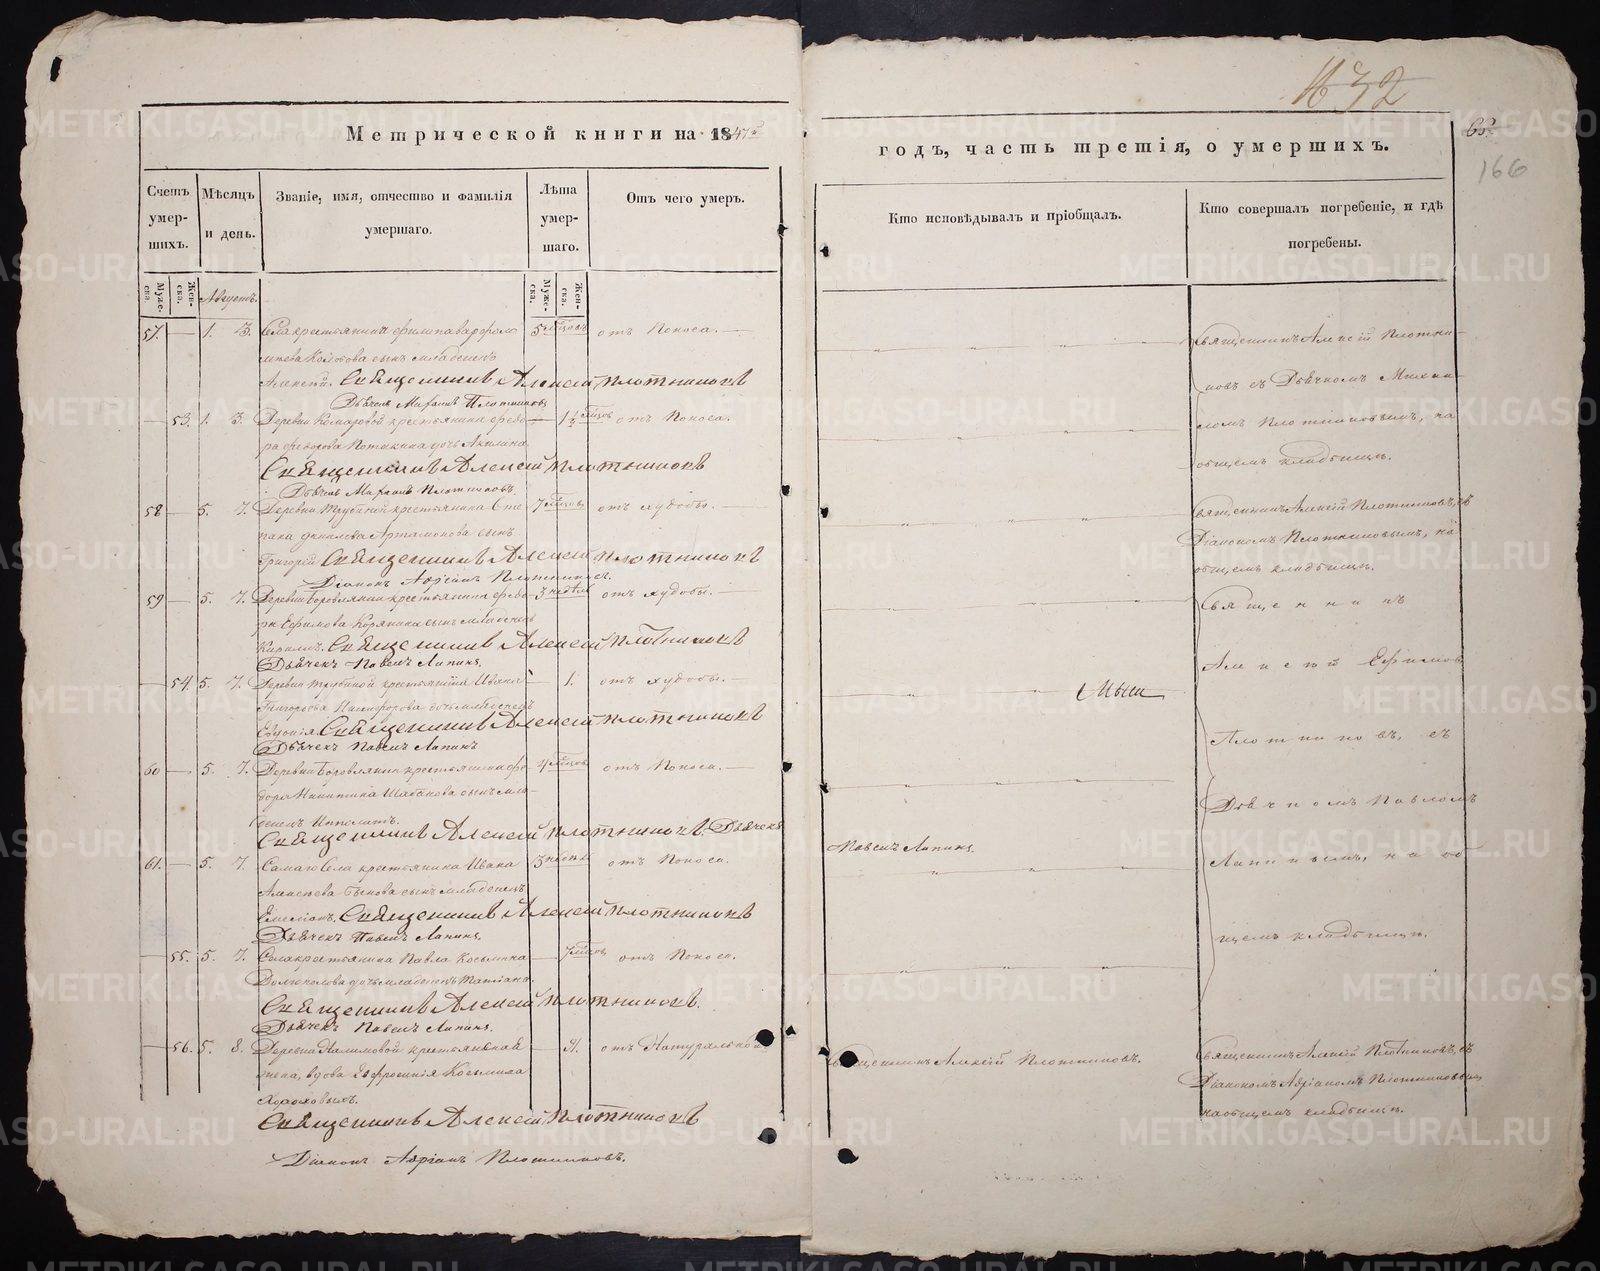 1632
65.
166
Метрической книги на 1847й
годъ, часть третія, о умершихъ.
Счетъ умер-шихъ.
Мѣсяцъ и день.
Званіе, имя, отчество и фамилія умершаго.
Лѣта умер-шаго.
Отъ чего умеръ.
Кто исповѣдывалъ и пріобщалъ.
Кто совершалъ погребеніе, и гдѣ погребены.
Муже-ска.
Жен-ска.
Муже-ска.
Жен-ска.
Августъ.
57. — 1. 3. Села крестьянина 5 мѣсцовъ отъ Поноса. —
сынъ младенецъ
Алексѣй. Священникъ Алексѣй Плотниковъ
Дьячекъ Михаилъ Плотниковъ
— 53. 1. 3. Деревни Комаровой крестьянина Ѳедо- — отъ Поноса.
ра дочь Акилина
Священникъ Алексѣй Плотниковъ
Дьячекъ Михаилъ Плотниковъ.
58 — 5. 7. Деревни крестьянина Сте- 7 мѣсцовъ отъ худобы. —
пана Данилова Артамонова сынъ
Григорій Священникъ Алексѣй Плотниковъ
Діаконъ Адріанъ Плотниковъ.
59 — 5. 7. Деревни Боровлянки крестьянина Ѳедо- 3 недѣль отъ худобы. —
ра Ефимова Корякина сынъ младенецъ
Кириллъ. Священникъ Алексѣй Плотниковъ
Дьячекъ Павелъ Лапинъ.
— 54. 5. 7. Деревни крестьянина Ивана — 1. отъ худобы. —
Григорьева Никифорова дочь младенецъ
Евдокія. Священникъ Алексѣй Плотниковъ
Дьячекъ Павелъ Лапинъ
60 — 5. 7. Деревни Боровлянки крестьянина Ѳе- 4 мѣсцовъ отъ Поноса. —
дора Никитина Шабакова сынъ мла-
денецъ Ипполитъ.
Священникъ Алексѣй Плотниковъ. Дьячекъ
Павелъ Лапинъ.
61. — 5. 7. Самаго Села крестьянина Ивана 3 недѣль отъ Поноса.
Алексѣева Быкова сынъ младенецъ
Емеліанъ. Священникъ Алексѣй Плотниковъ
Дьячекъ Павелъ Лапинъ.
— 55. 5. 7. Села крестьянина Павла Козьмина — 7 мѣсцов отъ Поноса.
Долгополова дочь младенецъ Татіана.
Священникъ Алексѣй Плотниковъ.
Дьячекъ Павелъ Лапинъ.
— 56. 5. 8. Деревни Налимовой крестьянская — отъ Натуральной
жена, вдова Евфросинія Козьмина
Священникъ Алексѣй Плотниковъ
Діаконъ Адріанъ Плотниковъ.
Священникъ Алексій Плотниковъ.
Священникъ Алексій Плотни-
ковъ съ Дьячкомъ Михаи-
ломъ Плотниковымъ, на
общемъ кладбищѣ.
Священникъ Алексій Плотниковъ, съ
Діакономъ Плотниковымъ, на
общемъ кладбищѣ.
Священникъ
Алексій Ефимовъ
Плотниковъ, съ
Дьячкомъ Павломъ
Лапинымъ, на об
щемъ кладбищѣ.
Священникъ Алексій Плотниковъ, съ
Діакономъ Адріаномъ Плотниковымъ
на общемъ кладбищѣ.
METRIKI.GASO-URAL.RU